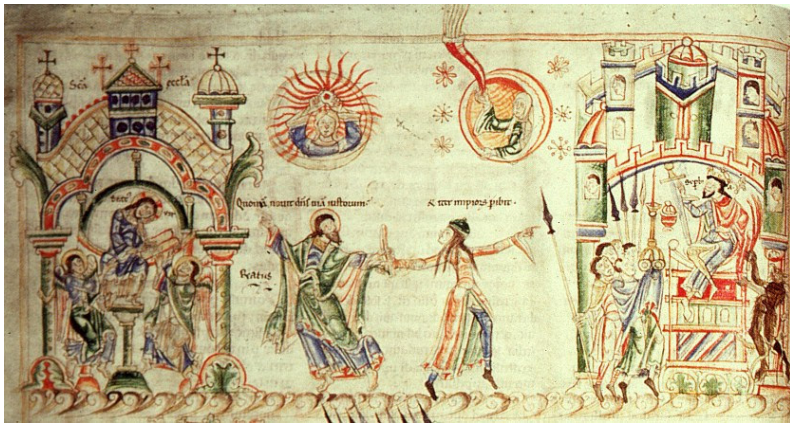 Sc̄a eccl̄a
Quoniā novit dn̄s viā iustorum·
& iter impiorū p̄ibit·
Beatus